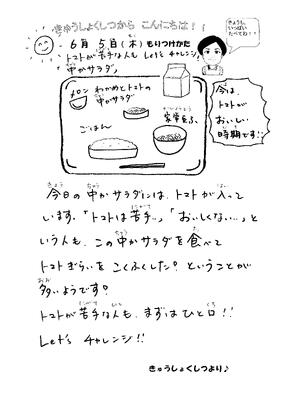 きゅうしょくしつから こんにちは!!
6月 5日(木) もりつけかた
トマトが苦手な人も Let's チャレンジ!
「中かサラダ」
きょうも、
いっぱい
たべてね!!
メロン
わかめとトマトの
中かサラダ
家常豆ふ
ごはん
今は、
トマトが
おいしい
時期です!!
今日の中かサラダには、トマトが入って
います。「トマトは苦手…」「おいしくない…」と
いう人も、この中かサラダを食べて
トマトぎらいをこくふくした?ということが
多いようです?
トマトが苦手な人も、まずはひと口!!
Let's チャレンジ!!
きゅうしょくしつより♪